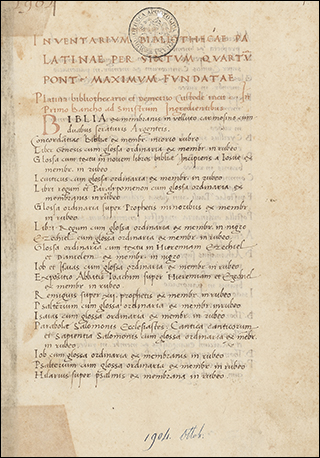 1904
INVENTARIUM BIBLIOTHECAE PA
LATINAE PER SIXTUM QUARTŪ
PONT. MAXIMUM FUNDATAE
Platina bibliothecario et demetrio Custode
Primo Bancho ad sinistram Ingredientibus
BIBLIA ex membranis in velluto carmosino cum
duabus seraturis Argenteis.
Concordantiae Bibliae ex membr. in corio rubeo
Liber Genesis cum glossa ordinaria ex membr. in rubeo
Glossa cum textu in novem libros bibliae Incipiens a Iosue ex
membr. in rubeo
Leviticus cum glossa ordinaria ex membr. in rubeo
Liber regum et Paralypomenon cum glossa ordinaria ex
membranis in rubeo
Glossa ordinaria super Prophetis minoribus ex membr.
in rubeo
Libri Regum cum glossa ordinaria ex membr. in nigro
Ezechiel cum glossa ordinaria ex membr. in rubeo
Glossa ordinaria cum textu in Hieremiam Ezechiel
et Danielem ex membr. in nigro
Iob et Isaias cum glossa ordinaria ex membr. in rubeo
Expositio Abbatis Ioachim super Hieremiam et Ezechiel
ex membr. in rubeo
Remigius super xij. prophetis ex membr. in rubeo
Psalterium cum glossa ordinaria ex membr. in rubeo
Isaias cum glossa ordinaria ex membr. in rubeo
Parabolae Salomonis Ecclesiastes Cantica canticorum
et Sapientia Salomonis cum glossa ordinaria ex mebr.
in rubeo
Iob cum glossa ordinaria ex membranis in rubeo
Psalterium cum glossa ordinaria ex membr. in rubeo
Hilarius super psalmis ex membranis in rubeo
1904 Ottob.